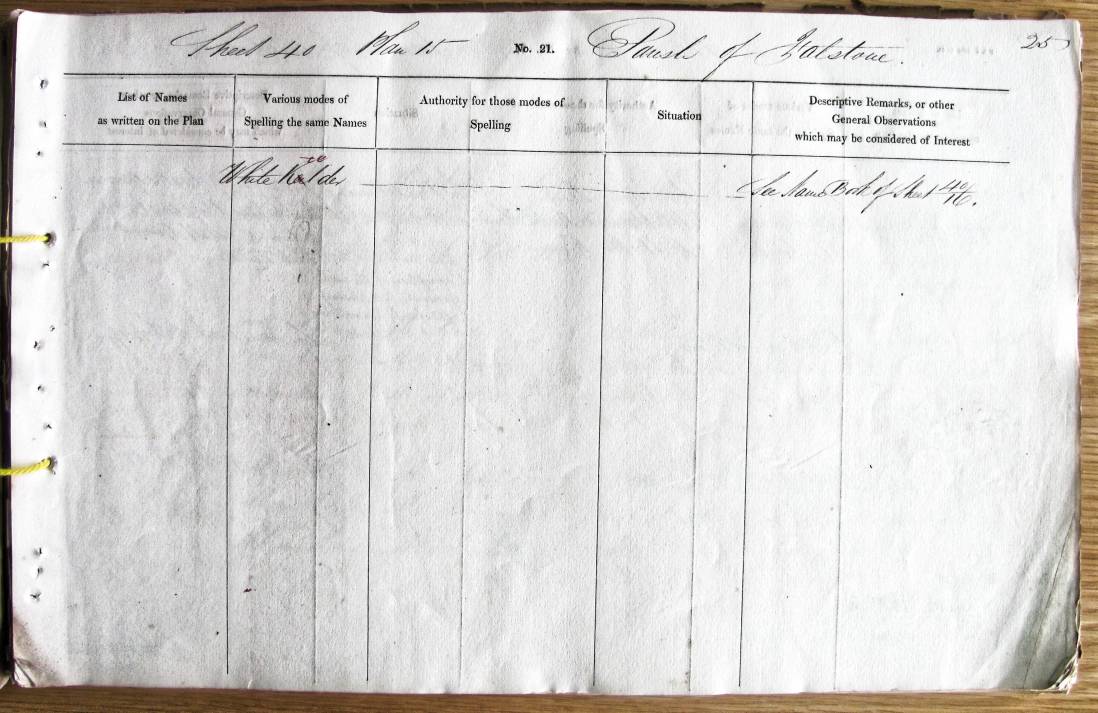 Sheet 40 Plan 15 No. 21. Parish of Falstone. 25
List of Names
as written on the Plan
Various modes of
Spelling the same Names
Authority for those modes of
Spelling
Situation
Descriptive Remarks, or other
General Observations
which may be considered of Interest
White
See Name Book of Sheet 40/16.